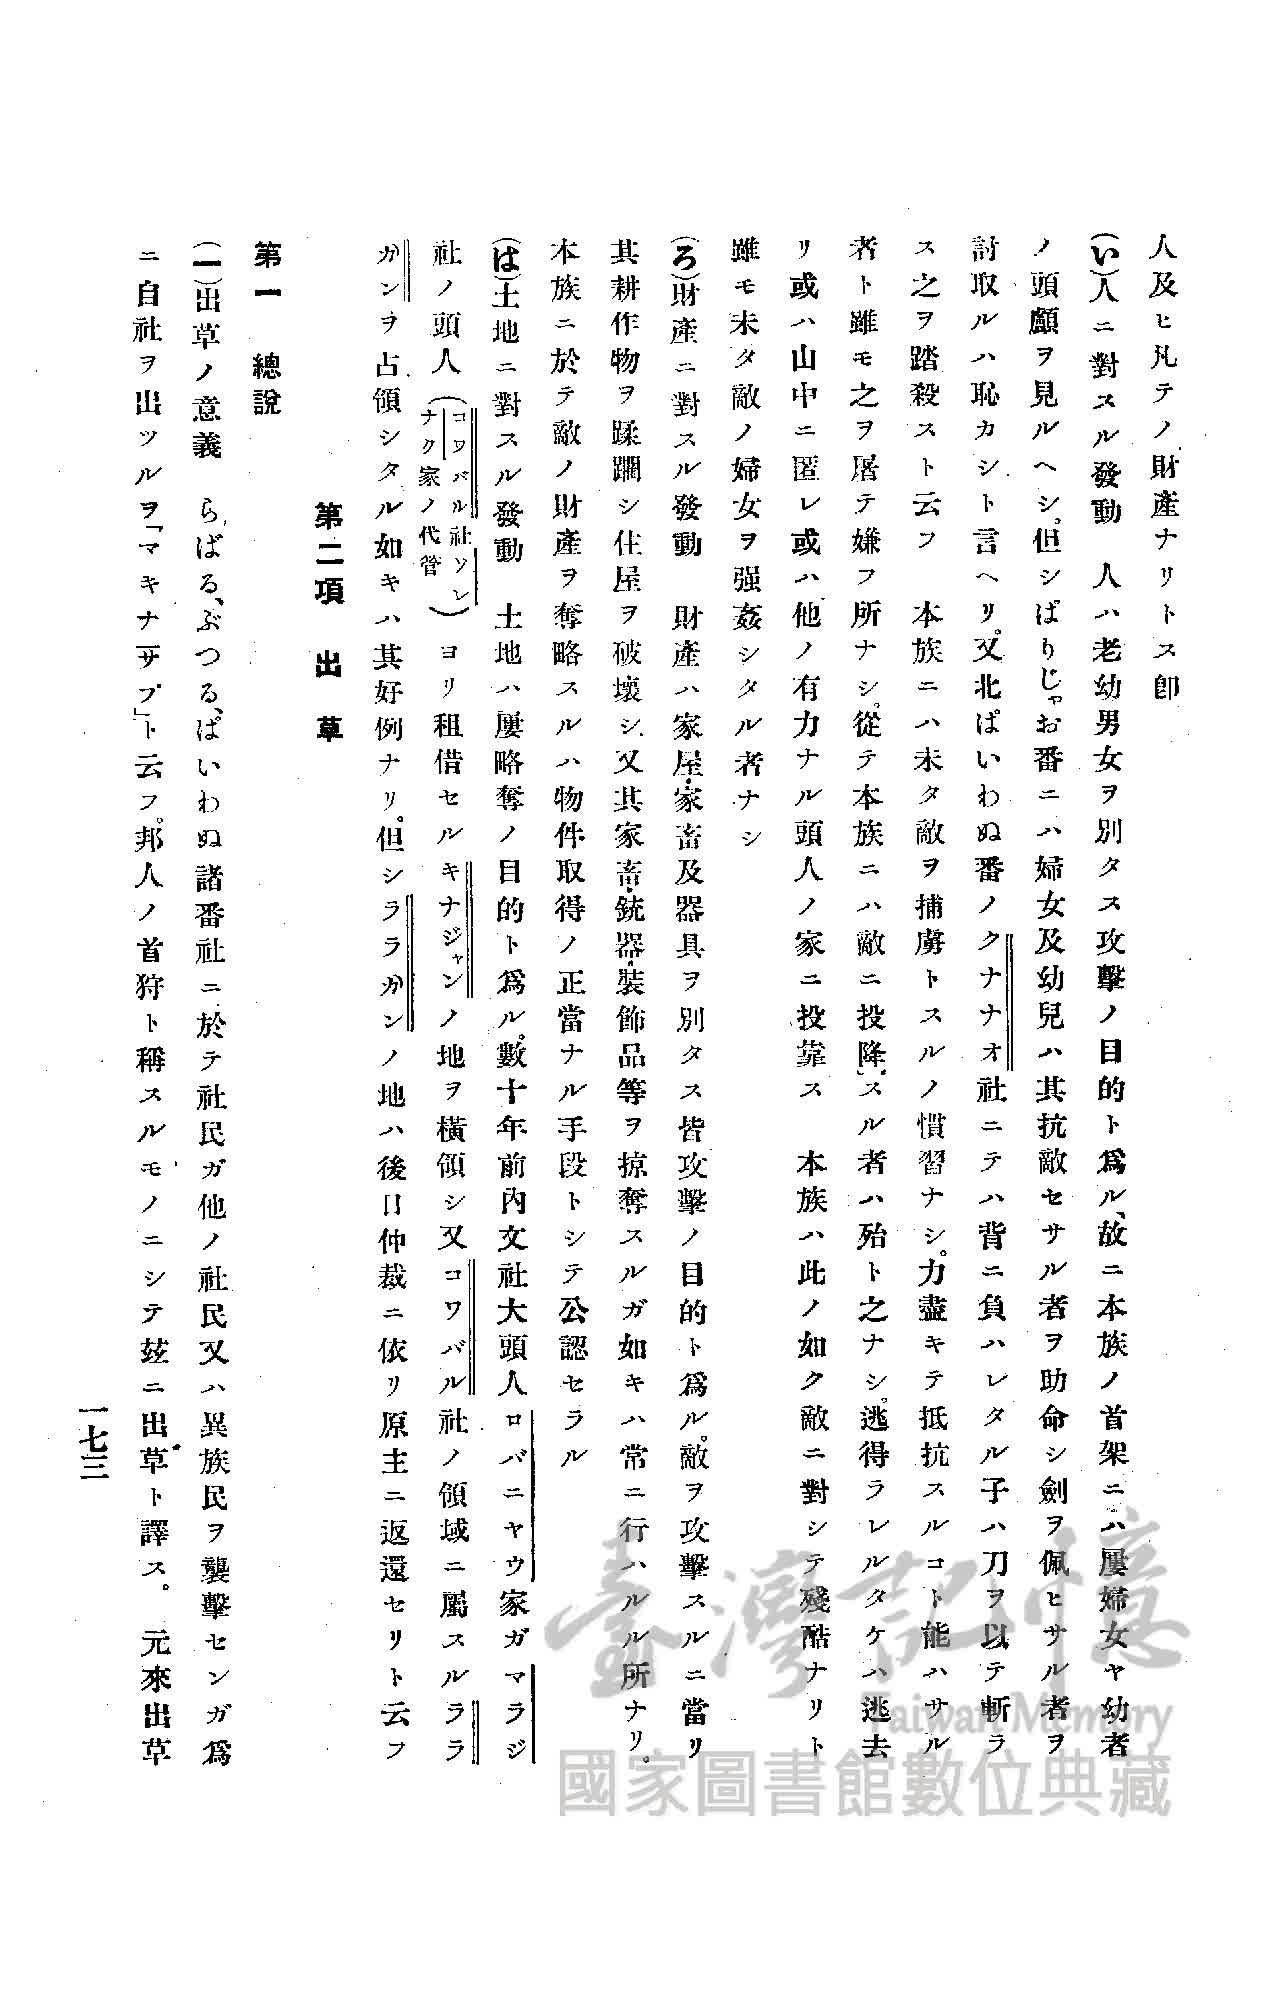 人及ヒ凡テノ財產ナリトス卽
(い)人ニ對スル發動　人ハ老幼男女ヲ別タス攻擊ノ目的ト爲ル、故ニ本族ノ首架ニハ屢婦女ヤ幼者
ノ頭顱ヲ見ルヘシ。但シぱりじゃお番ニハ婦女及幼兒ハ其抗敵セサル者ヲ助命シ劍ヲ佩ヒサル者ヲ
討取ルハ恥カシト言ヘリ。又北ぱいわぬ番ノクナナオ社ニテハ背ニ負ハレタル子ハ刀ヲ以テ斬ラ
ス之ヲ踏殺スト云フ　本族ニハ未タ敵ヲ捕虜トスルノ慣習ナシ。力盡キテ抵抗スルコト能ハサル
者ト雖モ之ヲ屠テ嫌フ所ナシ。從テ本族ニハ敵ニ投降スル者ハ殆ト之ナシ。逃得ラレルタケハ逃去
リ或ハ山中ニ匿レ或ハ他ノ有力ナル頭人ノ家ニ投靠ス　本族ハ此ノ如ク敵ニ對シテ殘酷ナリト
雖モ未タ敵ノ婦女ヲ强姦シタル者ナシ
(ろ)財產ニ對スル發動　財產ハ家屋・家畜及器具ヲ別タス皆攻擊ノ目的ト爲ル。敵ヲ攻擊スルニ當リ
其耕作物ヲ蹂躙シ住屋ヲ破壞シ、又其家畜・銃器・裝飾品等ヲ掠奪スルガ如キハ常ニ行ハルル所ナリ。
本族ニ於テ敵ノ財產ヲ奪略スルハ物件取得ノ正當ナル手段トシテ公認セラル
(は)土地ニ對スル發動　土地ハ屢略奪ノ目的ト爲ル。數十年前內文社大頭人ロバニヤウ家ガマラジ
社ノ頭人(コワバル社ソレナク家ノ代管)ヨリ租借セルキナジャンノ地ヲ橫領シ又コワバル社ノ領域ニ屬スルララ
ガンヲ占領シタル如キハ其好例ナリ。但シララガンノ地ハ後日仲裁ニ依リ原主ニ返還セリト云フ
第二項　出草
第一　總說
(一)出草ノ意義　らばる、ぶつる、ぱいわぬ諸番社ニ於テ社民ガ他ノ社民又ハ異族民ヲ襲擊センガ爲
ニ自社ヲ出ツルヲ「マキナサプ」ト云フ。邦人ノ首狩ト稱スルモノニシテ玆ニ出草ト譯ス。元來出草
一七三
臺灣記憶
Taiwan Memory
國家圖書館數位典藏